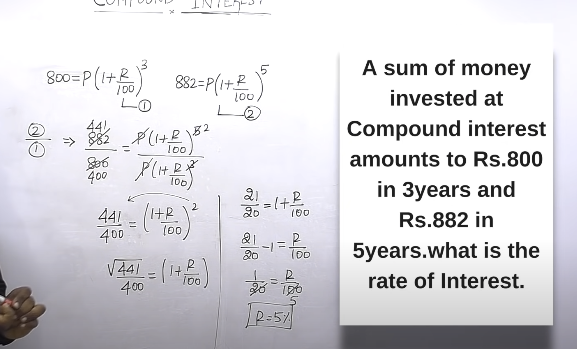 COMPOUND INTEREST
800=P(1+R/100)^3
①
882=P(1+R/100)^5
②
②/① ⇒ 441 882/800 400 = P(1+R/100)^5 2/P(1+R/100)^3
441/400 = (1+R/100)^2
√441/400 = (1+R/100)
21/20 = 1+R/100
21/20 -1 = R/100
1/20 = R/100 5
R=5%
A sum of money
invested at
Compound interest
amounts to Rs.800
in 3years and
Rs.882 in
5years.what is the
rate of Interest.